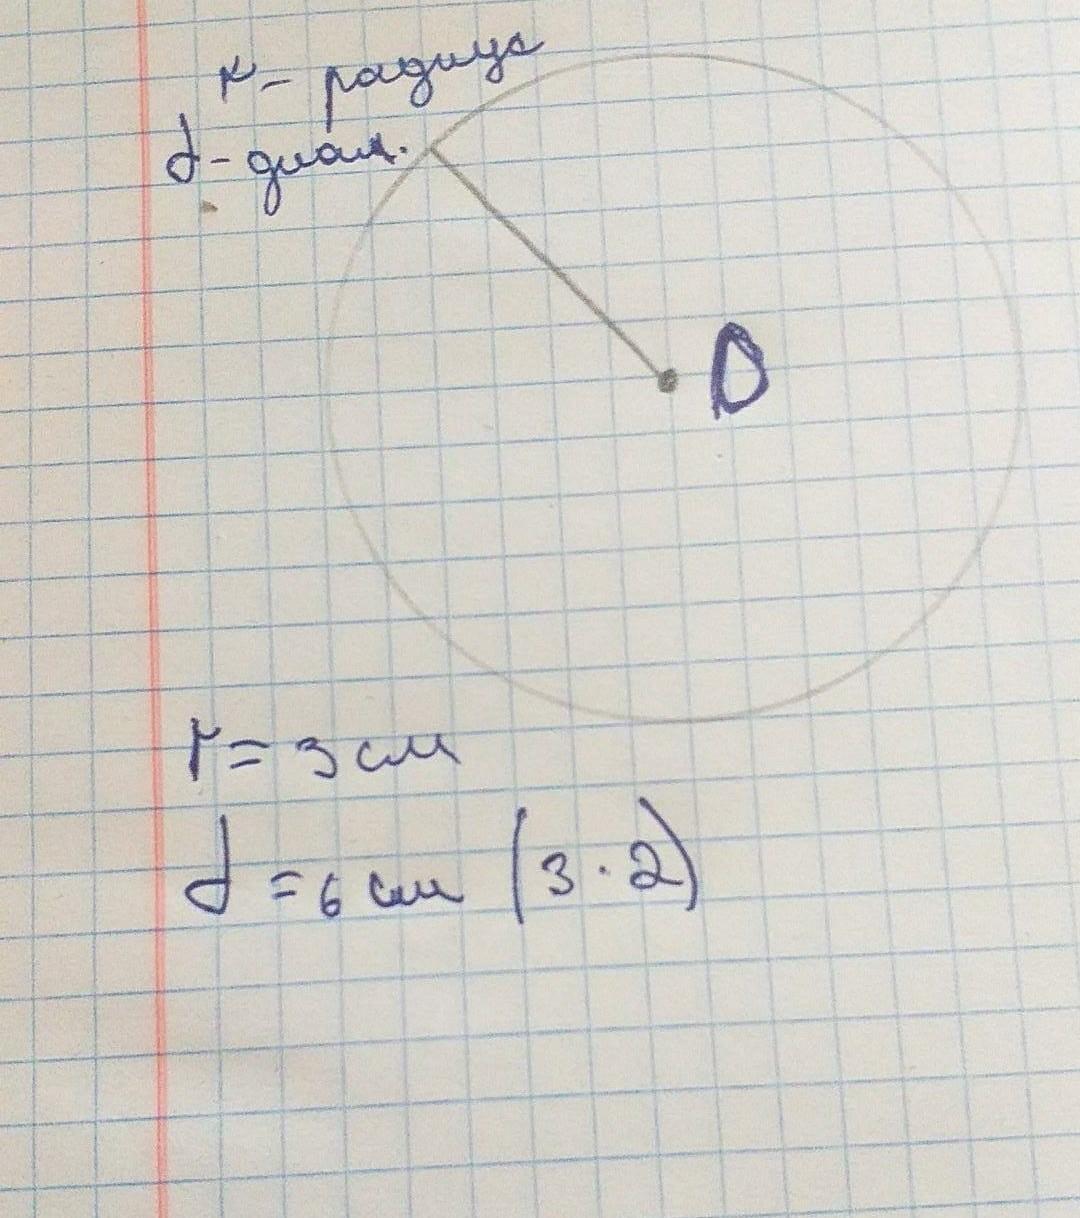 r - радиус
d - диам.
D
r = 3 см
d = 6 см (3 · 2)